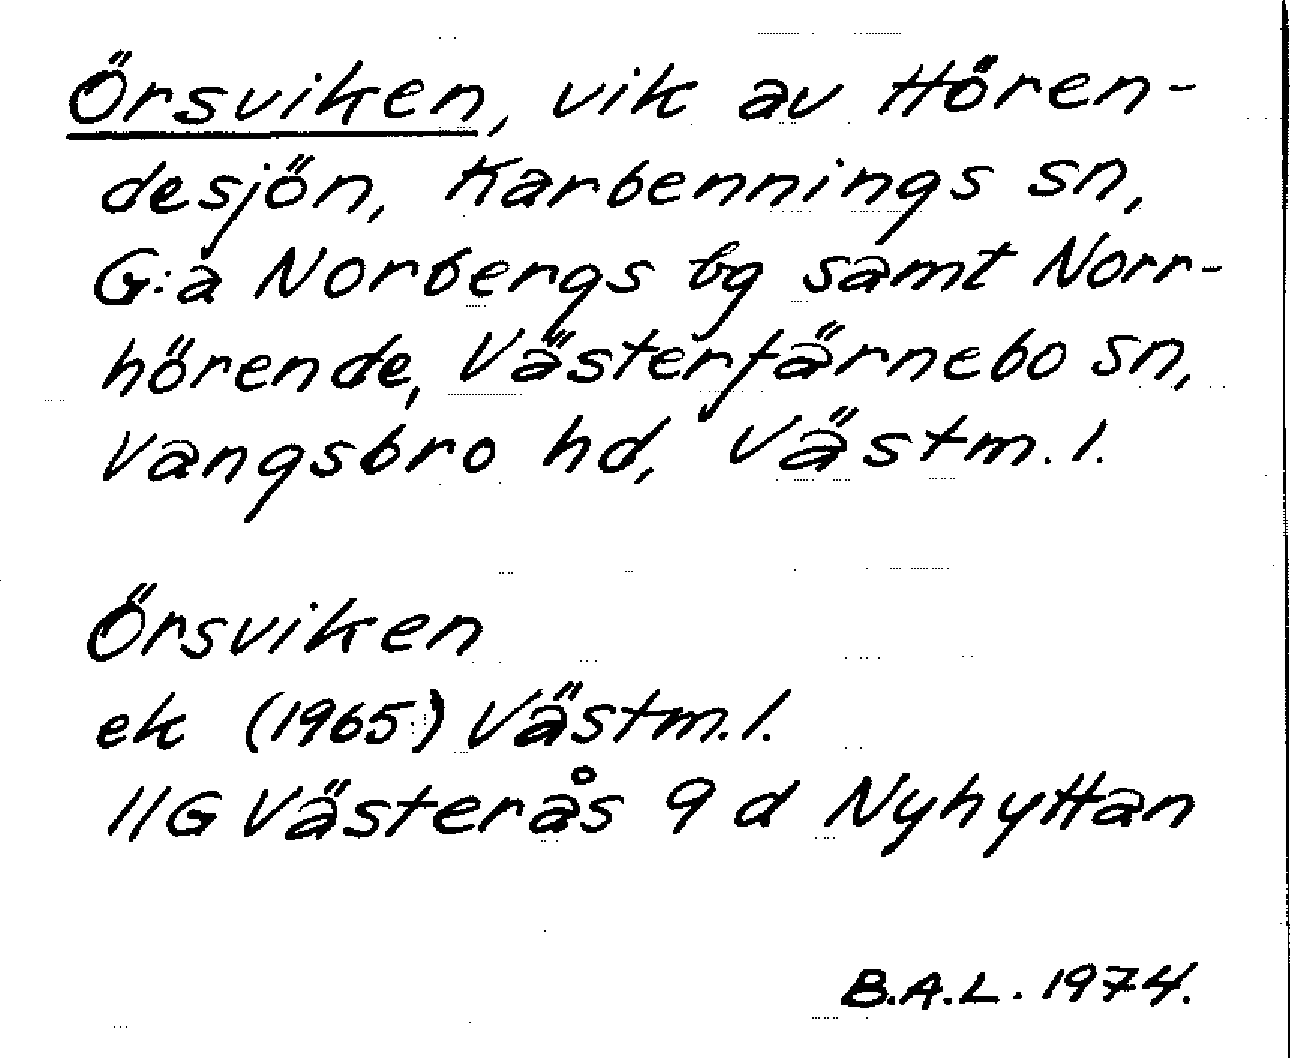 Örsviken, vik av Hören-
desjön, Karbennings sn,
G:a Norbergs bg samt Norr-
hörende, Västerfärnebo sn,
Vangsbro hd, Västm. l.
Örsviken
ek (1965) Västm. l.
11G Västerås 9 d Nyhyttan
B.A.L. 1974.